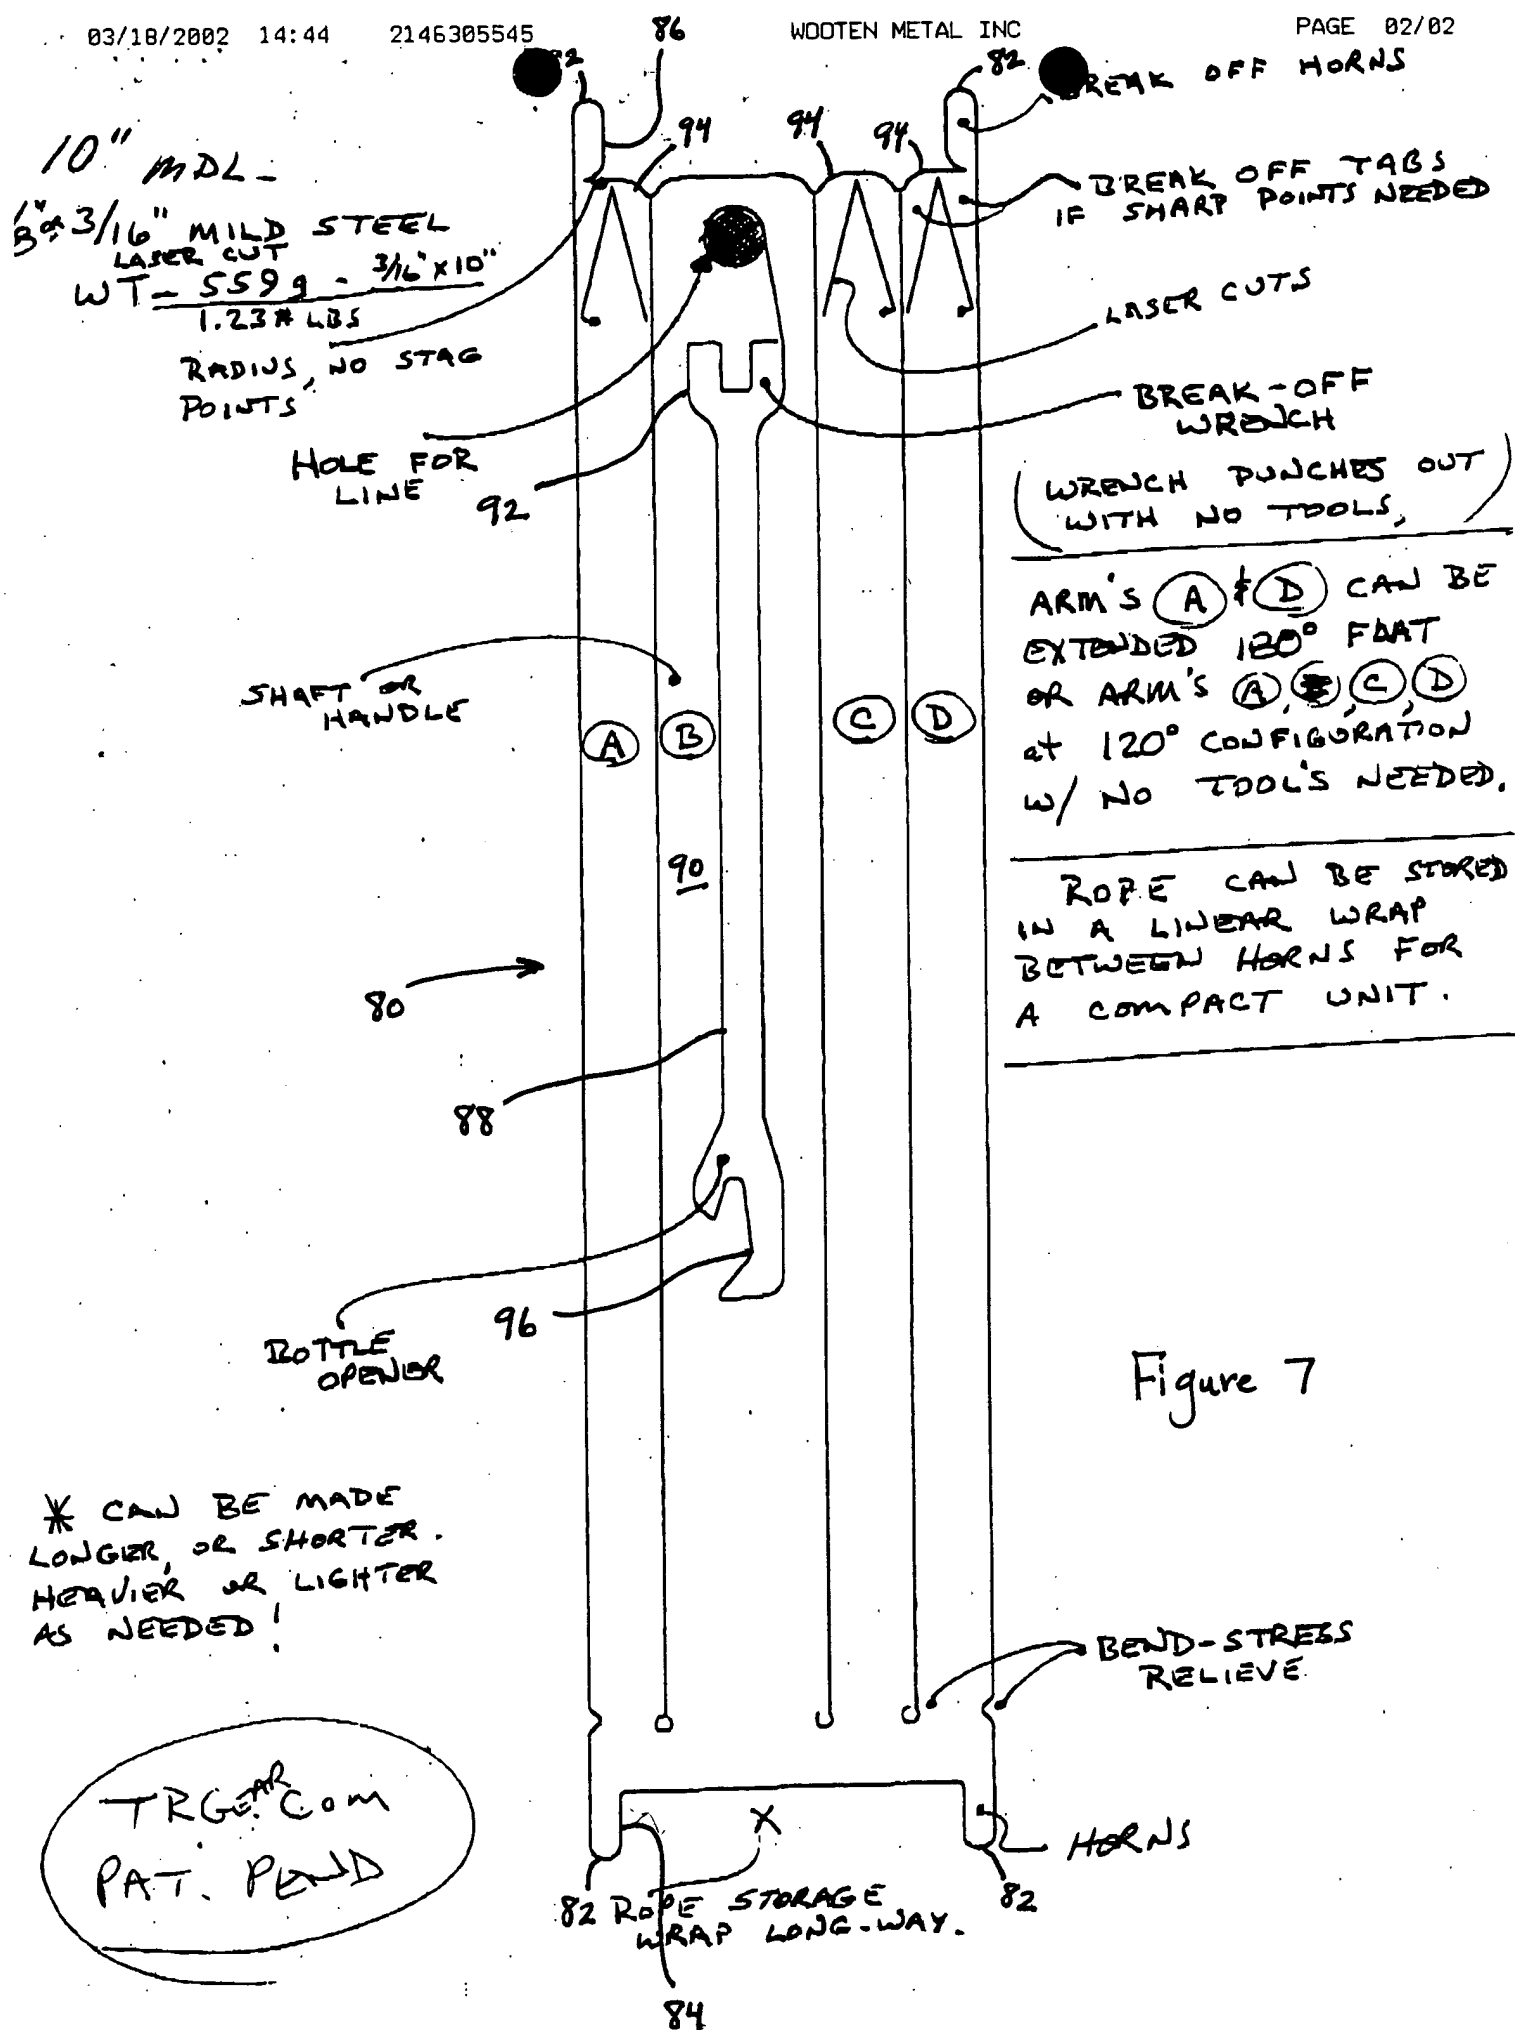 03/18/2002 14:44 2146305545 WOOTEN METAL INC PAGE 02/02
86
82
82
BREAK OFF HORNS
94
94
94
10" MDL-
1/8" OR 3/16" MILD STEEL
LASER CUT
WT- 559g - 3/16" X 10"
1.23# LBS
BREAK OFF TABS
IF SHARP POINTS NEEDED
RADIUS, NO STAG
POINTS
LASER CUTS
HOLE FOR
LINE
92
BREAK-OFF
WRENCH
(WRENCH PUNCHES OUT
WITH NO TOOLS,)
ARM'S A & D CAN BE
EXTENDED 180° FLAT
OR ARM'S A, B, C, D
at 120° CONFIGURATION
W/ NO TOOL'S NEEDED.
SHAFT OR
HANDLE
A B C D
90
ROPE CAN BE STORED
IN A LINEAR WRAP
BETWEEN HORNS FOR
A COMPACT UNIT.
80
88
96
BOTTLE
OPENER
Figure 7
* CAN BE MADE
LONGER, OR SHORTER.
HEAVIER OR LIGHTER
AS NEEDED!
BEND-STRESS
RELIEVE
TRGEAR.COM
PAT. PEND
X
HORNS
82 ROPE STORAGE
WRAP LONG-WAY.
82
84